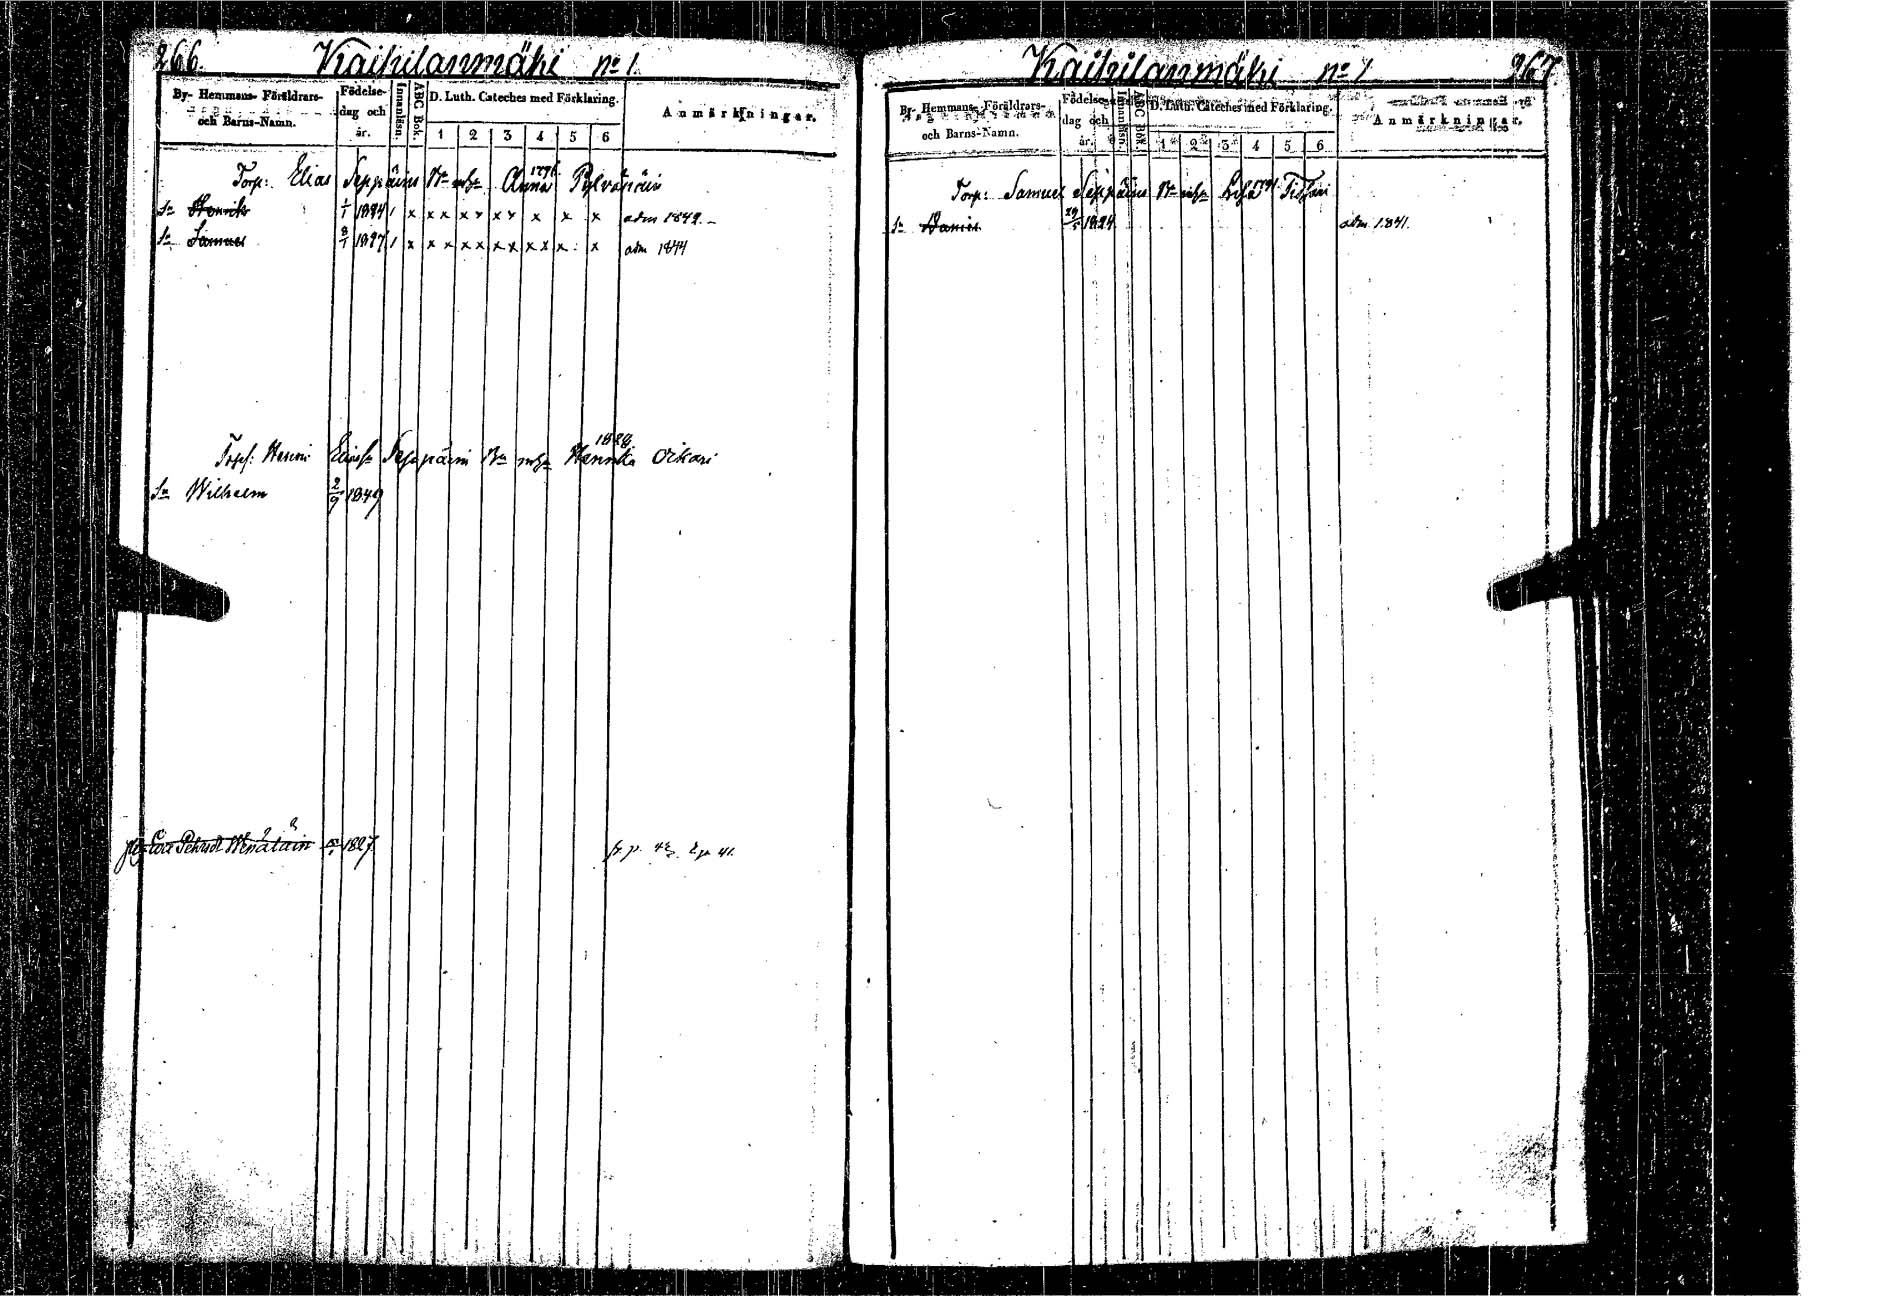 266.
Kaikilanmäki no 1
By- Hemmans- Föräldrars- och Barns-Namn.
Födelse- dag och år.
Innanläsn.
ABC Bok.
D. Luth. Cateches med Förklaring.
1 2 3 4 5 6
Anmärkningar.
1796
Torp: Elias Seppäins Bn mhu Anna Pylvänäin
Sn Henrik 1/1 1824 / x x x x x x x x x x adm 1842.
Sn Samuel 8/1 1827 / x x x x x x x x x x x adm 1844
1828
Henric Seppäini Bn Oikari
Sn Wilhelm 2/9 1849
1827
p. 41.
Kaikilanmäki no 1
267
By- Hemmans- Föräldrars- och Barns-Namn.
Födelse- dag och år.
Innanläsn.
ABC Bok.
D. Luth. Cateches med Förklaring.
1 2 3 4 5 6
Anmärkningar.
Torp: Samuel Seppäins Bn mhu
Sn Daniel 1824 adm 1841.